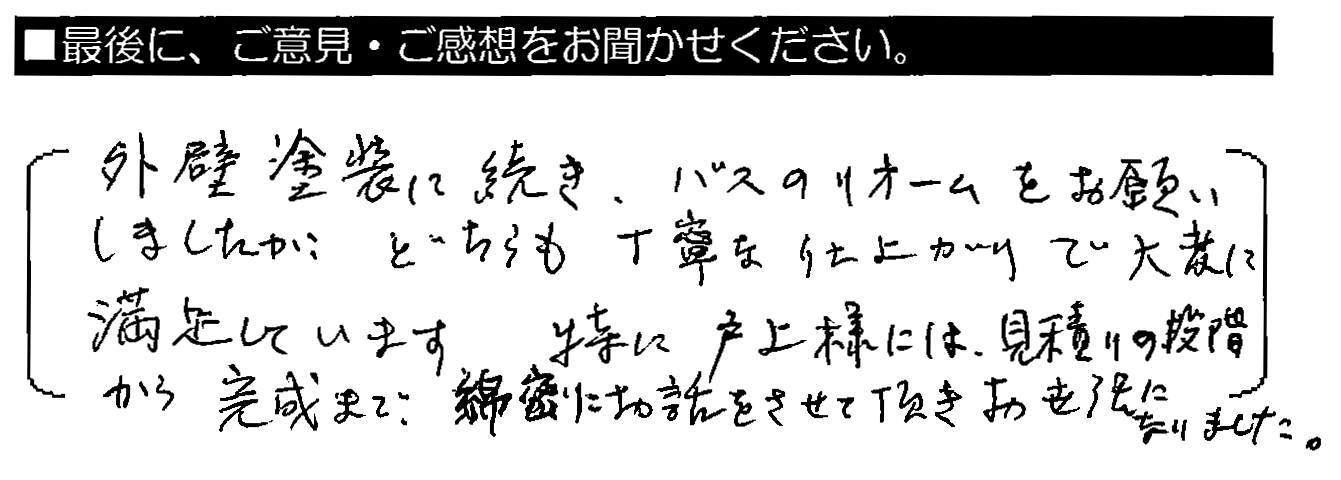 ■最後に、ご意見・ご感想をお聞かせください。
外壁塗装に続き、バスのリオームをお願い
しましたが、どちらも丁寧な仕上がりで大変に
満足しています 特に戸上様には、見積りの段階
から完成まで、綿密にお話をさせて頂きお世話に
なりました。